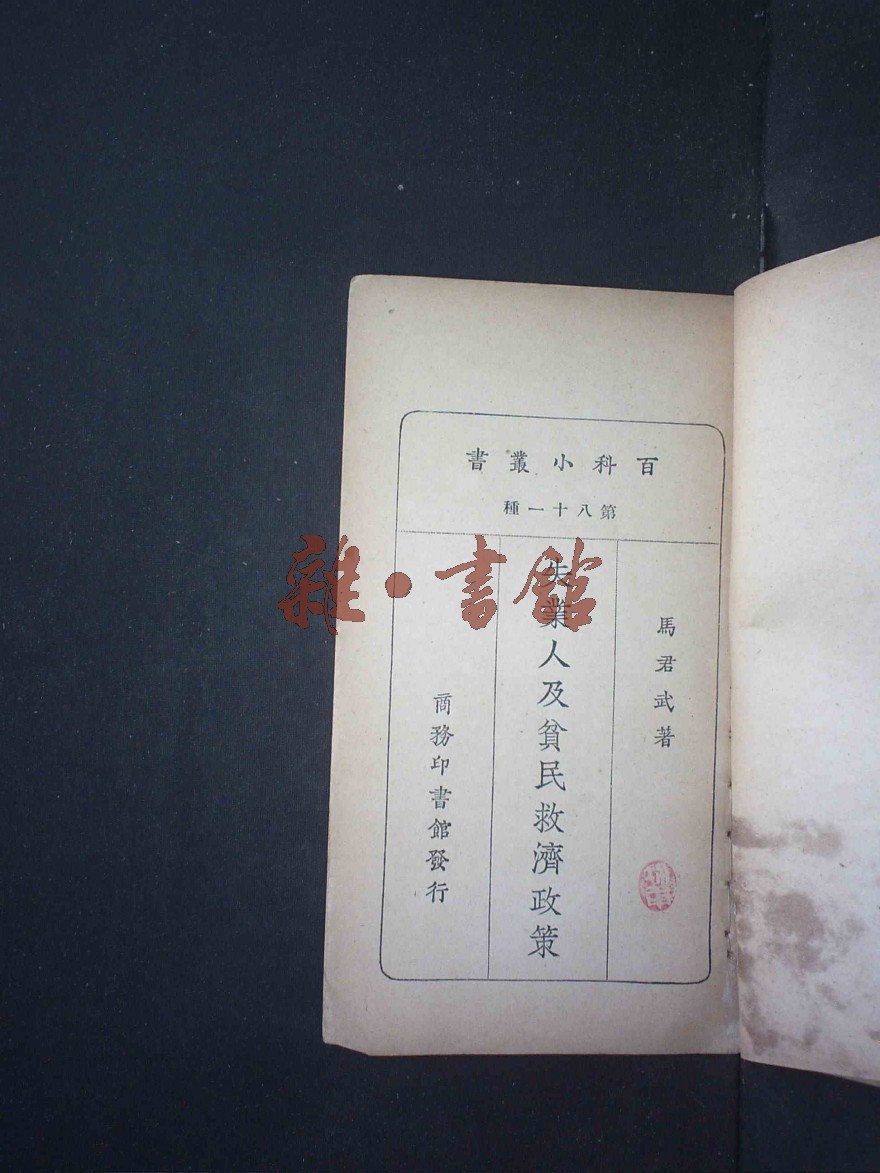 百科小叢書
第八十一種
馬君武著
失業人及貧民救濟政策
商務印書館發行
雜·書館